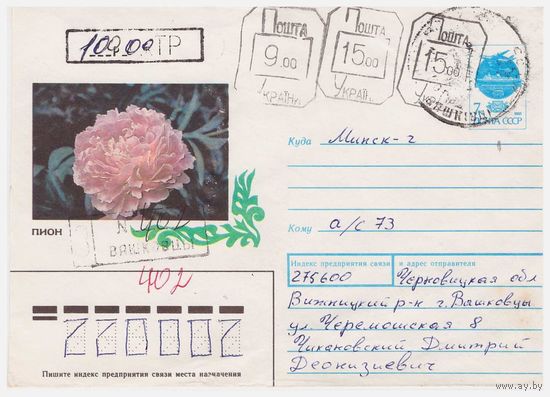 109.00 ТР
Пошта
9.00
Україна
Пошта
15.00
Україна
Пошта
15.00
7к
ПОЧТА СССР
Куда Минск-2
Кому а/с 73
ПИОН
N 402
ВАШКIВЦI
402
Индекс предприятия связи и адрес отправителя
275600 Черновицкая обл
Вижницкий р-н г. Вашковцы
ул. Черемошская 8
Чикановский Дмитрий
Деонизиевич
Пишите индекс предприятия связи места назначения
www.ay.by